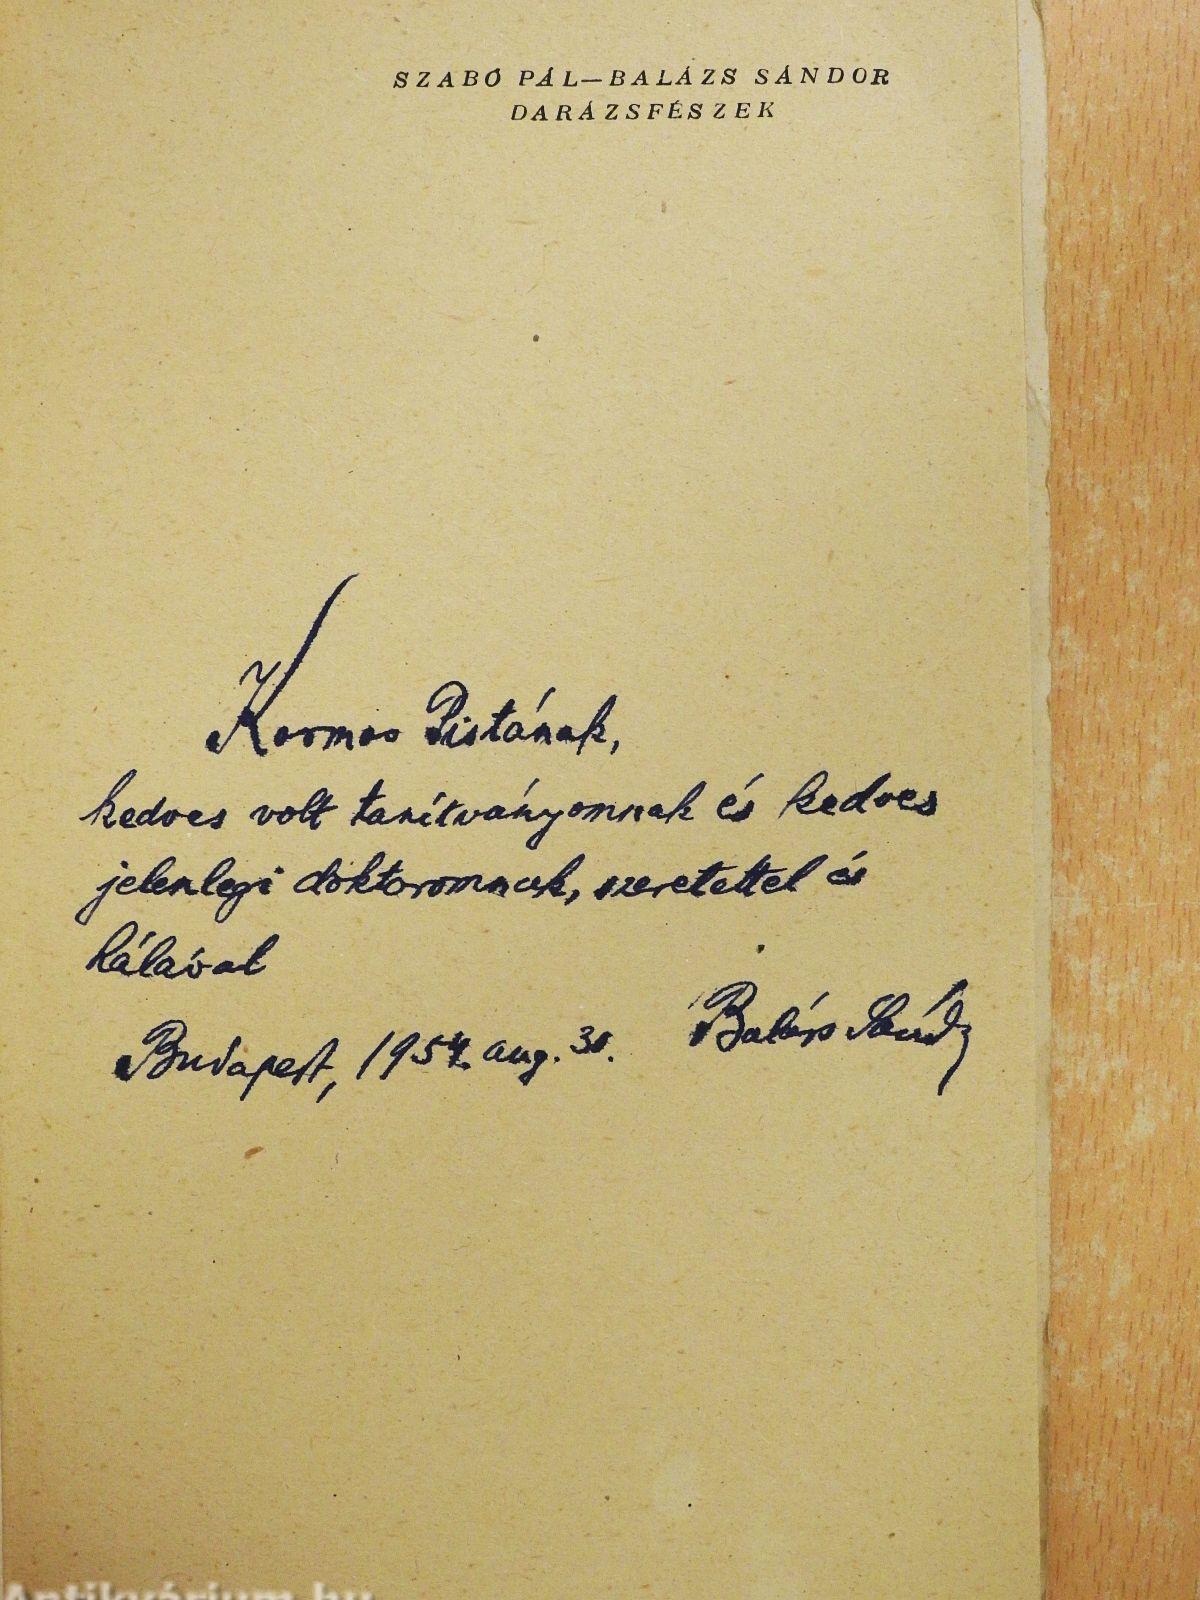 SZABÓ PÁL—BALÁZS SÁNDOR
DARÁZSFÉSZEK
Kormos Pistának,
kedves volt tanítványomnak és kedves
jelenlegi doktoromnak, szeretettel és
hálával
Balázs Sándor
Budapest, 1954. aug. 30.
Antikvárium.hu